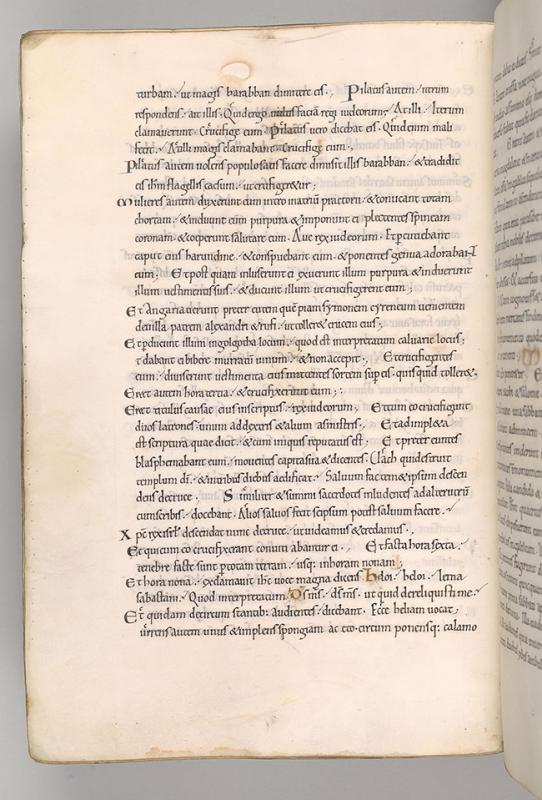 turbam. ut magis barabban dimittit eis. Pilatus autem iterum
respondens. ait illis. Quid ergo uultis faciā regi iudeorum; At illi. Iterum
clamauerunt. Crucifige eum. Pilatus uero dicebat eis. Quid enim mali
fecit. At illi magis clamabant. Crucifige eum.,
Pilatus autem uolens populo satisfacere dimisit illis barabban. & tradidit
eis ihm flagellis caesum. ut crucifiger&ur;
Milites autem duxerunt eum intro in atriū praetorii. & conuocant totam
chortam. & induunt eum purpura & imponunt ei plectentes spineam
coronam. & coeperunt salutare eum. Aue rex iudeorum. Et percutiebant
caput eius harundine. & conspuebant eum. & ponentes genua adorabant
eum; Et post quam inluserunt ei exuerunt illum purpura & induerunt
illum uestimentis suis. & ducunt illum ut crucifigerent eum;
Et Angariauerunt preter eūntem quempiam symonem cyreneum uenientem
de uilla patrem alexandri & rufi. ut toller& crucem eius;
Et perducunt illum in golgotha locum. quod est interpretatum caluarie locus;
& dabant ei bibere murratū uinum. & non accepit. Et crucifigentes
eum. diuiserunt uestimenta eius mittentes sortem sup eis. quis quid toller&.
Erat autem hora tertia. & crucifixerunt eum;
Erat titulus causae eius inscriptus. rex iudeorum. Et cum eo crucifigunt
duos latrones. unum ad dexteris & alium a sinistris. Et adimpl&a
est scriptura quae dicit. & cum iniquis reputatus est; Et preter euntes
blasphemabant eum. mouentes capita sua & dicentes. Uach qui destruit
templum di. & in tribus diebus aedificat. Saluum fac temetipsum descen
dens de cruce. Similiter & summi sacerdotes inludentes ad alterutrū
cum scribis. dicebant. Alios saluos fecit se ipsum potest saluum facere.
Xpc rex isrl descendat nunc de cruce. ut uideamus & credamus.
Et qui cum eo crucifixi erant conuitiabantur ei. Et facta hora sexta.
tenebre factae sunt p totam terram. usq; in horam nonam
Et hora nona. exclamauit ihc uoce magna dicens heloi. heloi. lema
sabactani. Quod interpretatum. Ds ms. ds ms. ut quid dereliquisti me.
Et quidam de circum stantib; audientes. dicebant. Ecce heliam uocat;
Currens autem unus & implens spongiam aceto. circum ponensq; calamo